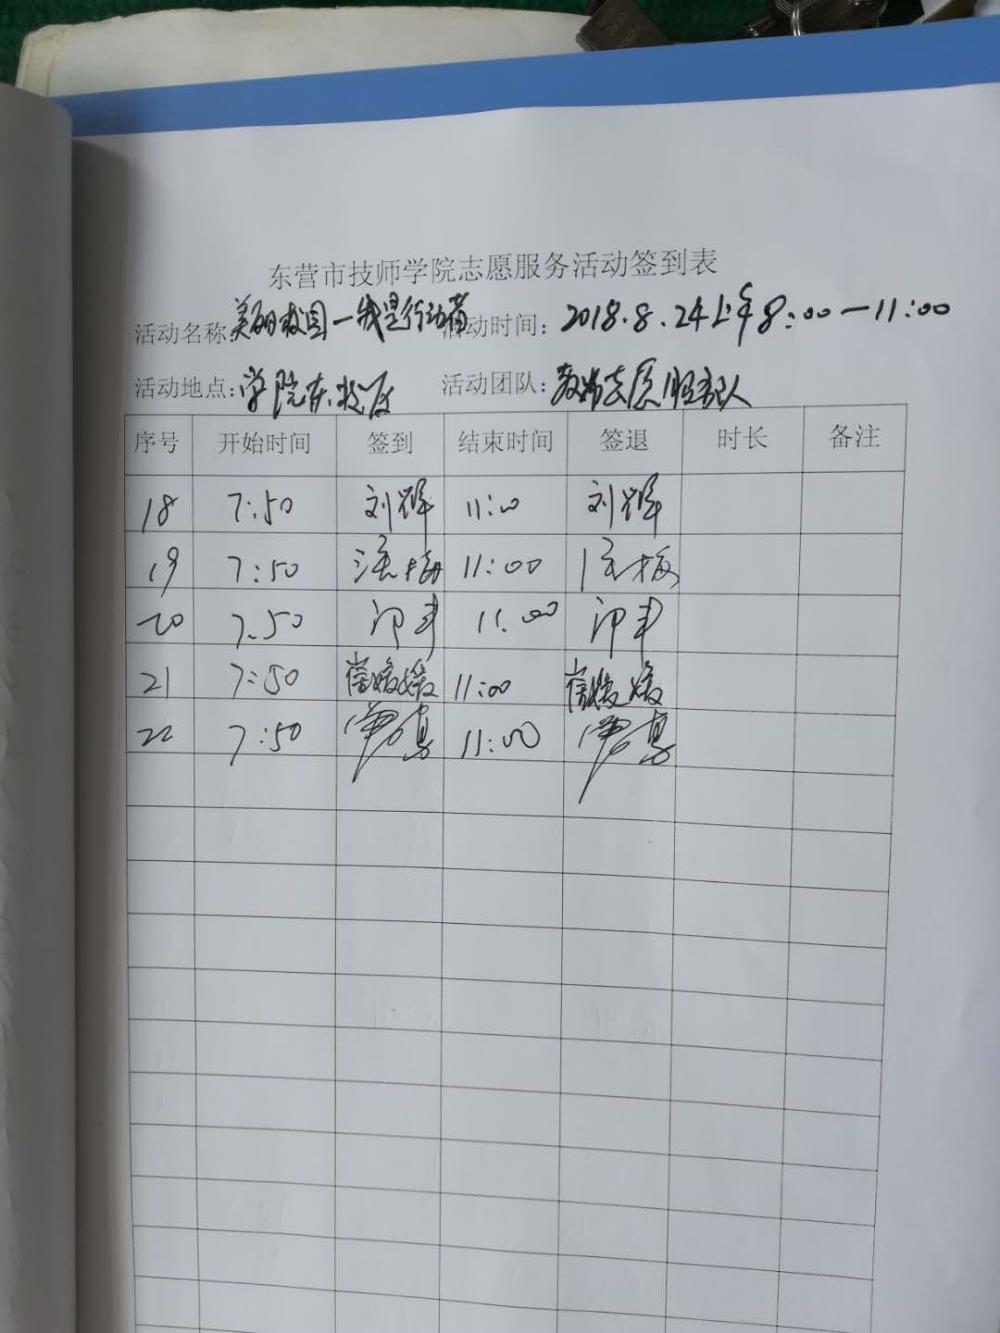 东营市技师学院志愿服务活动签到表
活动名称 美丽校园一我是行动者 活动时间: 2018.8.24上午8:00—11:00
活动地点: 学院东校区 活动团队: 教师志愿服务队
序号 开始时间 签到 结束时间 签退 时长 备注
18 7:50 刘辉 11:00 刘辉
19 7:50 11:00
20 7:50 11:00
21 7:50 崔媛媛 11:00 崔媛媛
22 7:50 11:00